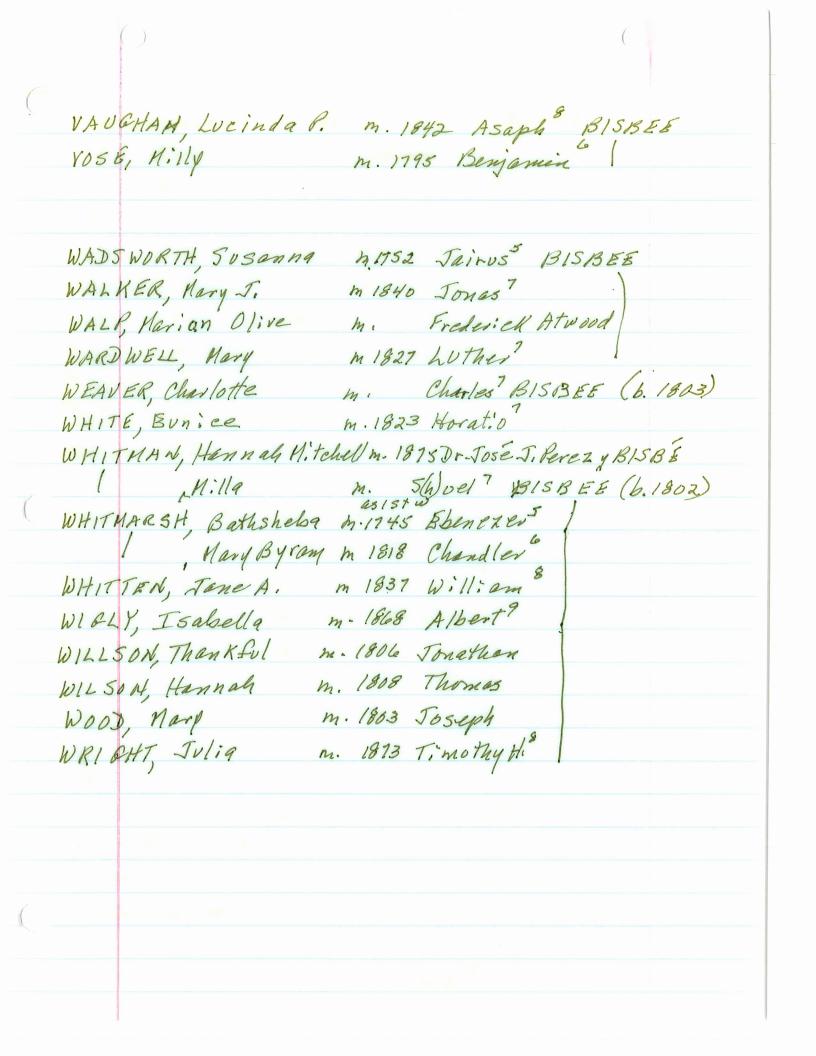 VAUGHAN, Lucinda P. m. 1842 Asaph⁸ BISBEE
VOSE, Milly m. 1795 Benjamin⁶ |
WADSWORTH, Susanna m. 1752 Jairus⁵ BISBEE
WALKER, Mary J. m 1840 Jonas⁷
WALP, Marian Olive m. Frederick Atwood
WARDWELL, Mary m 1827 Luther⁷
WEAVER, Charlotte m. Charles⁷ BISBEE (b. 1803)
WHITE, Eunice m. 1823 Horatio⁷
WHITMAN, Hannah Mitchell m. 1875 Dr. José J. Perez y BISBÉ
| , Milla m. S(h)uel⁷ BISBEE (b. 1802)
as 1st w
WHITMARSH, Bathsheba m. 1745 Ebenezer⁵
| , Mary Byram m 1818 Chandler⁶
WHITTEN, Jane A. m 1837 William⁸
WIGLY, Isabella m. 1868 Albert⁹
WILLSON, Thankful m. 1806 Jonathan
WILSON, Hannah m. 1808 Thomas
WOOD, Mary m. 1803 Joseph
WRIGHT, Julia m. 1873 Timothy H.⁸